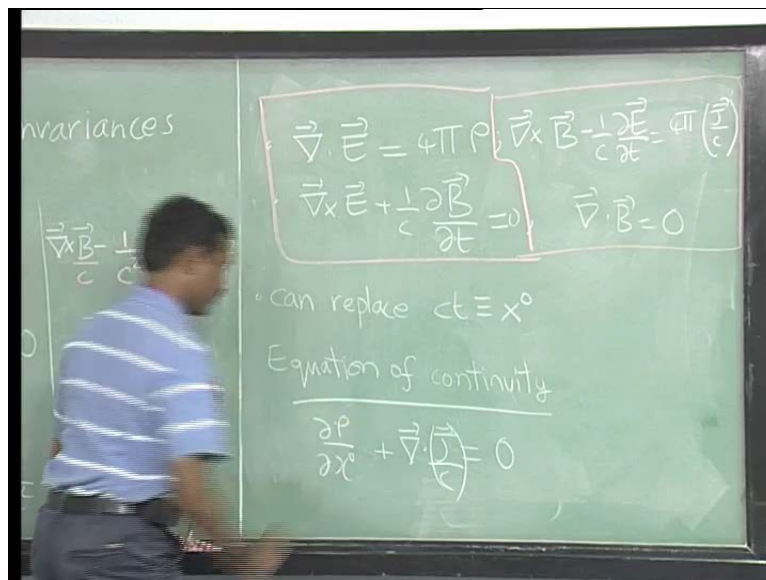 nvariances
∇⃗×B⃗/c − 1/c²
∇⃗·E⃗ = 4πρ ; ∇⃗×B⃗ − 1/c ∂E⃗/∂t = 4π(J⃗/c)
∇⃗×E⃗ + 1/c ∂B⃗/∂t = 0 , ∇⃗·B⃗ = 0
· can replace ct ≡ x⁰
Equation of continuity
∂ρ/∂x⁰ + ∇⃗·(J⃗/c) = 0